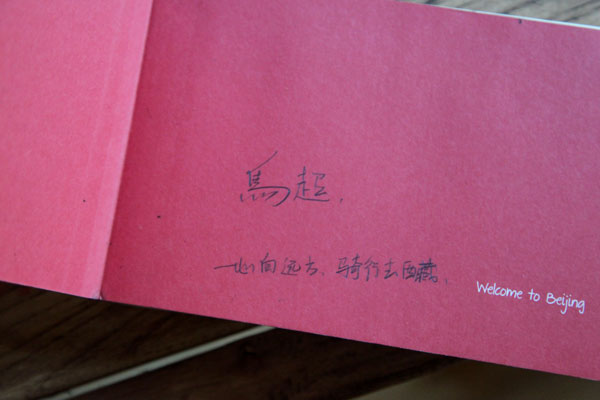 馬超.
一心向远方、骑行去西藏.
Welcome to Beijing